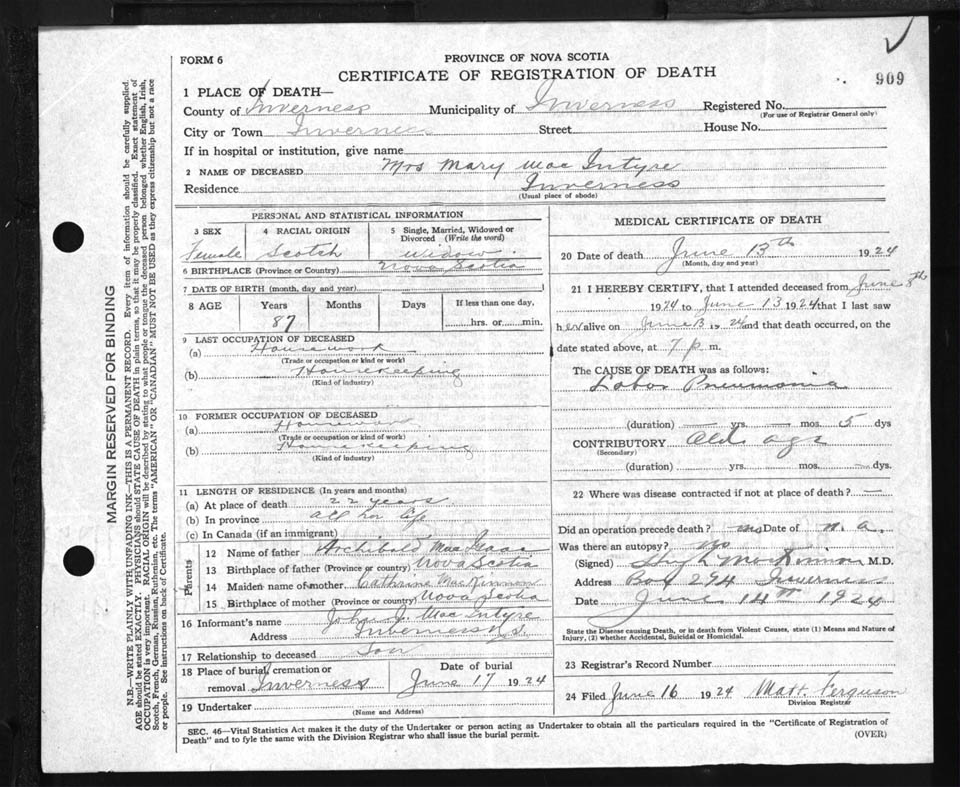 FORM 6
PROVINCE OF NOVA SCOTIA
CERTIFICATE OF REGISTRATION OF DEATH
909
1 PLACE OF DEATH—
County of Inverness Municipality of Inverness Registered No.
(For use of Registrar General only)
City or Town Inverness Street House No.
If in hospital or institution, give name
2 NAME OF DECEASED Mrs Mary Mac Intyre
Residence Inverness
(Usual place of abode)
PERSONAL AND STATISTICAL INFORMATION
3 SEX 4 RACIAL ORIGIN 5 Single, Married, Widowed or Divorced (Write the word)
Female Scotch Widow
6 BIRTHPLACE (Province or Country) Nova Scotia
7 DATE OF BIRTH (month, day and year)
8 AGE Years Months Days If less than one day,
87 hrs. or min.
9 LAST OCCUPATION OF DECEASED
(a) Housework
(Trade or occupation or kind of work)
(b) Housekeeping
(Kind of industry)
10 FORMER OCCUPATION OF DECEASED
(a) Housework
(Trade or occupation or kind of work)
(b) Housekeeping
(Kind of industry)
11 LENGTH OF RESIDENCE (In years and months)
(a) At place of death 22 years
(b) In province all her life
(c) In Canada (if an immigrant)
Parents
12 Name of father Archibald Mac Isaac
13 Birthplace of father (Province or country) Nova Scotia
14 Maiden name of mother Cathrine MacKinnon
15 Birthplace of mother (Province or country) Nova Scotia
16 Informant's name John J. Mac Intyre
Address Inverness N.S.
17 Relationship to deceased Son
18 Place of burial, cremation or removal Inverness Date of burial June 17 1924
19 Undertaker
(Name and Address)
MEDICAL CERTIFICATE OF DEATH
20 Date of death June 13th 1924
(Month, day and year)
21 I HEREBY CERTIFY, that I attended deceased from June 8th
1924 to June 13 1924 that I last saw
her alive on June 13 1924 and that death occurred, on the
date stated above, at 7 p m.
The CAUSE OF DEATH was as follows:
Lobar Pneumonia
(duration) — yrs. — mos. 5 dys
CONTRIBUTORY Old age
(Secondary)
(duration) yrs. mos. dys.
22 Where was disease contracted if not at place of death? —
Did an operation precede death? no Date of n.a.
Was there an autopsy? no
(Signed) Hugh McKinnon M.D.
Address Box 294 Inverness
Date June 14th 1924
State the Disease causing Death, or in death from Violent Causes, state (1) Means and Nature of Injury, (2) whether Accidental, Suicidal or Homicidal.
23 Registrar's Record Number
24 Filed June 16 1924 Matt. Ferguson
Division Registrar
SEC. 46—Vital Statistics Act makes it the duty of the Undertaker or person acting as Undertaker to obtain all the particulars required in the "Certificate of Registration of
Death" and to fyle the same with the Division Registrar who shall issue the burial permit.
(OVER)
MARGIN RESERVED FOR BINDING
N.B.—WRITE PLAINLY WITH UNFADING INK—THIS IS A PERMANENT RECORD. Every item of information should be carefully supplied.
AGE should be stated EXACTLY. PHYSICIANS should STATE CAUSE OF DEATH in plain terms, so that it may be properly classified. Exact statement of
OCCUPATION is very important. RACIAL ORIGIN will be described by stating to what people or tongue the deceased person belonged whether English, Irish,
Scotch, French, German, Russian, Ruthenian, etc. The terms "AMERICAN" OR "CANADIAN" MUST NOT BE USED as they express citizenship but not a race
or people. See instructions on back of Certificate.